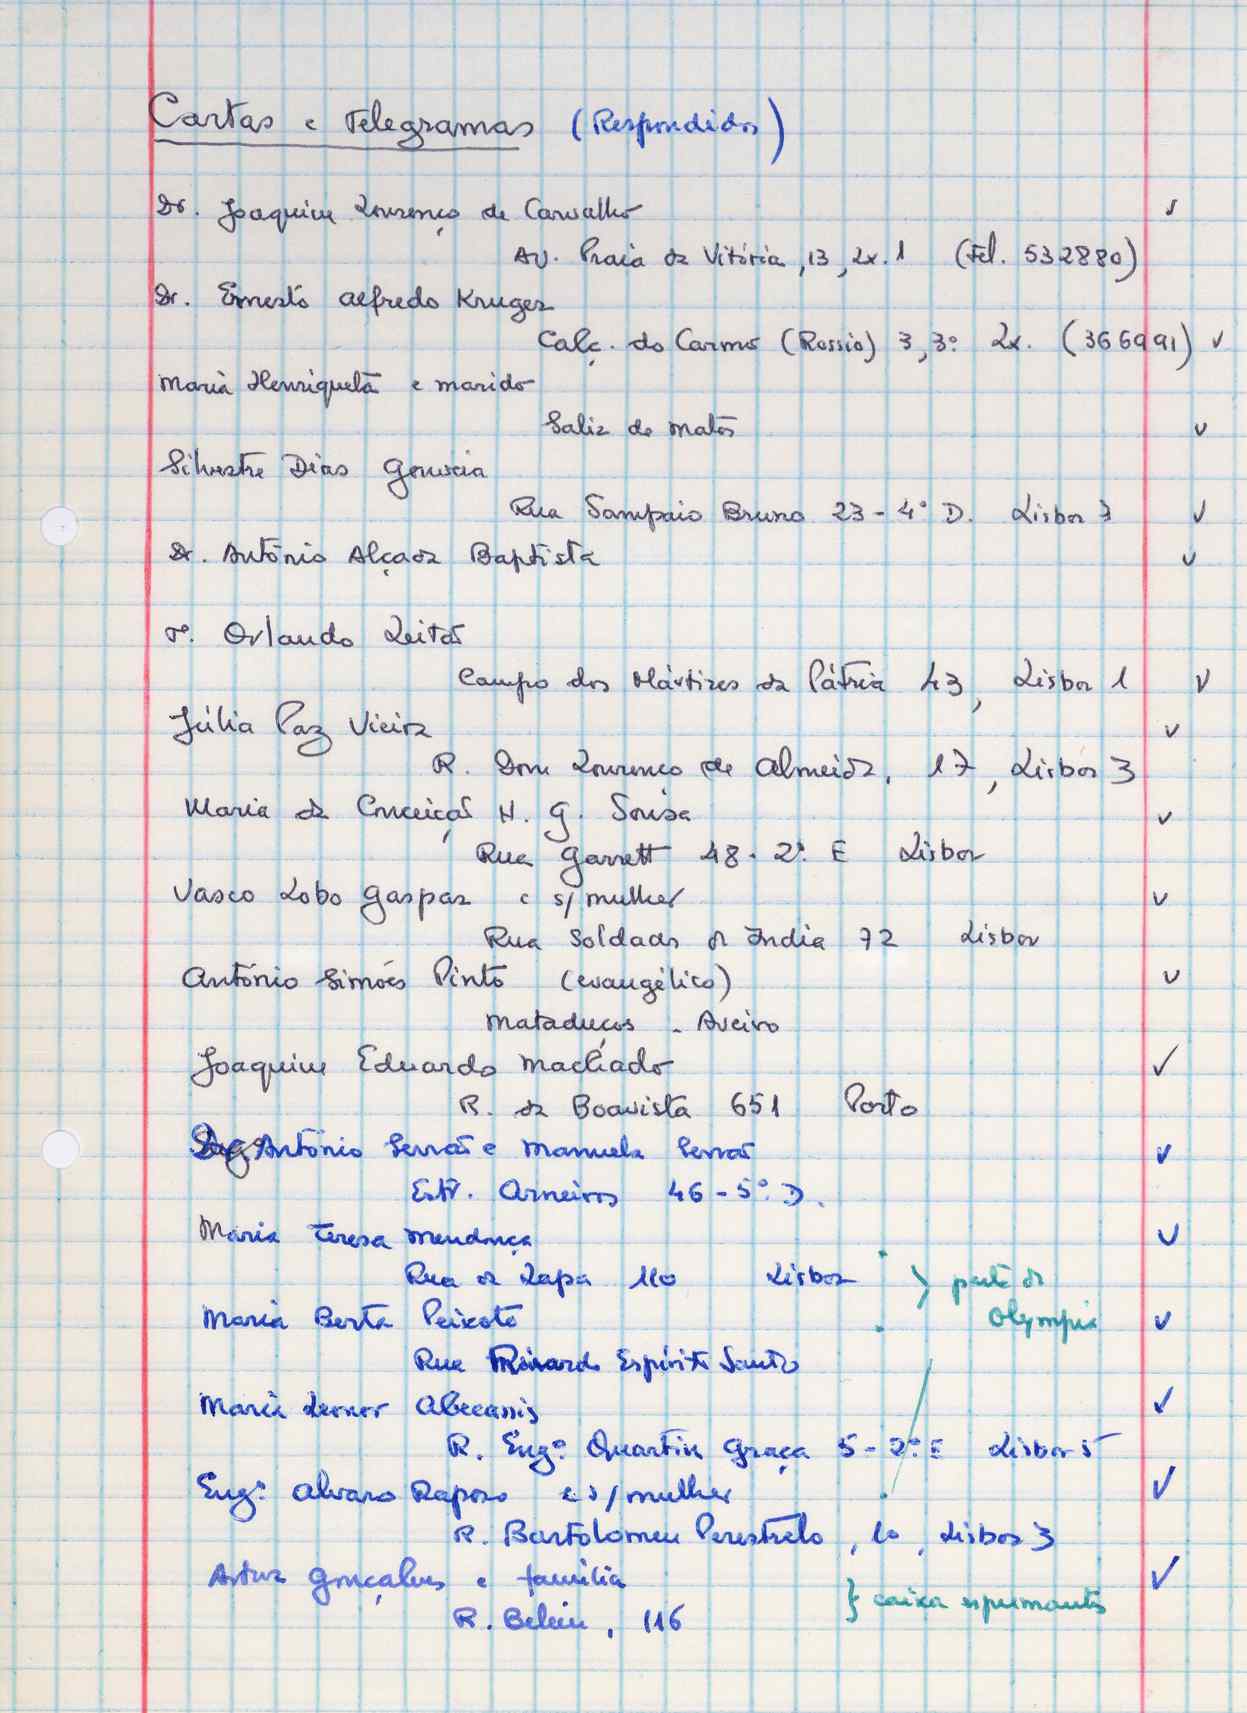 Cartas e Telegramas (Respondidos)
Dr. Joaquim Lourenço de Carvalho
Av. Praia da Vitória, 13, Lx. 1 (Tel. 532880)
Dr. Ernesto Alfredo Kruger
Calç. do Carmo (Rossio) 3, 3º. Lx. (366991)
Maria Henriqueta e marido
Galiz de Matos
Silvestre Dias Gouveia
Rua Sampaio Bruno 23-4º D. Lisboa 3
Dr. António Alçada Baptista
P. Orlando Leitão
Campo dos Mártires da Pátria 43, Lisboa 1
Júlia Paz Vieira
R. Dom Lourenço de Almeida, 17, Lisboa 3
Maria da Conceição H. G. Sousa
Rua Garrett 48-2º. E Lisboa
Vasco Lobo Gaspar e s/mulher
Rua Soldado da India 72 Lisboa
António Simões Pinto (evangélico)
Mataduços - Aveiro
Joaquim Eduardo Machado
R. da Boavista 651 Porto
António Serrão e Manuela Serrão
Estr. Arneiros 46-5º. D.
Maria Teresa Mendonça
Rua da Lapa 110 Lisboa } parte da
Maria Berta Peixoto Olympia
Rua Ricardo Espírito Santo
Maria Leonor Abecassis
R. Engº. Quartin Graça 5-2º. E Lisboa 5
Engº. Alvaro Raposo e s/mulher
R. Bartolomeu Perestrelo, 10, Lisboa 3
Artur Gonçalves e família
} caixa espumantes
R. Belém, 116